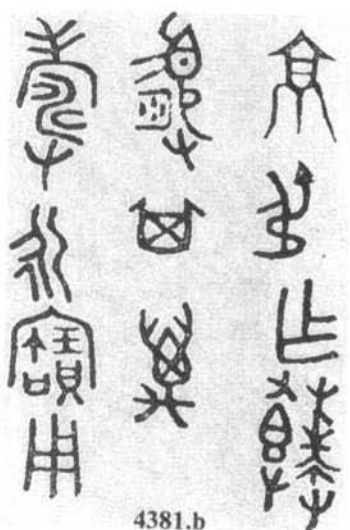 京弔乍饙
盨其萬
壽永寶用
4381.b